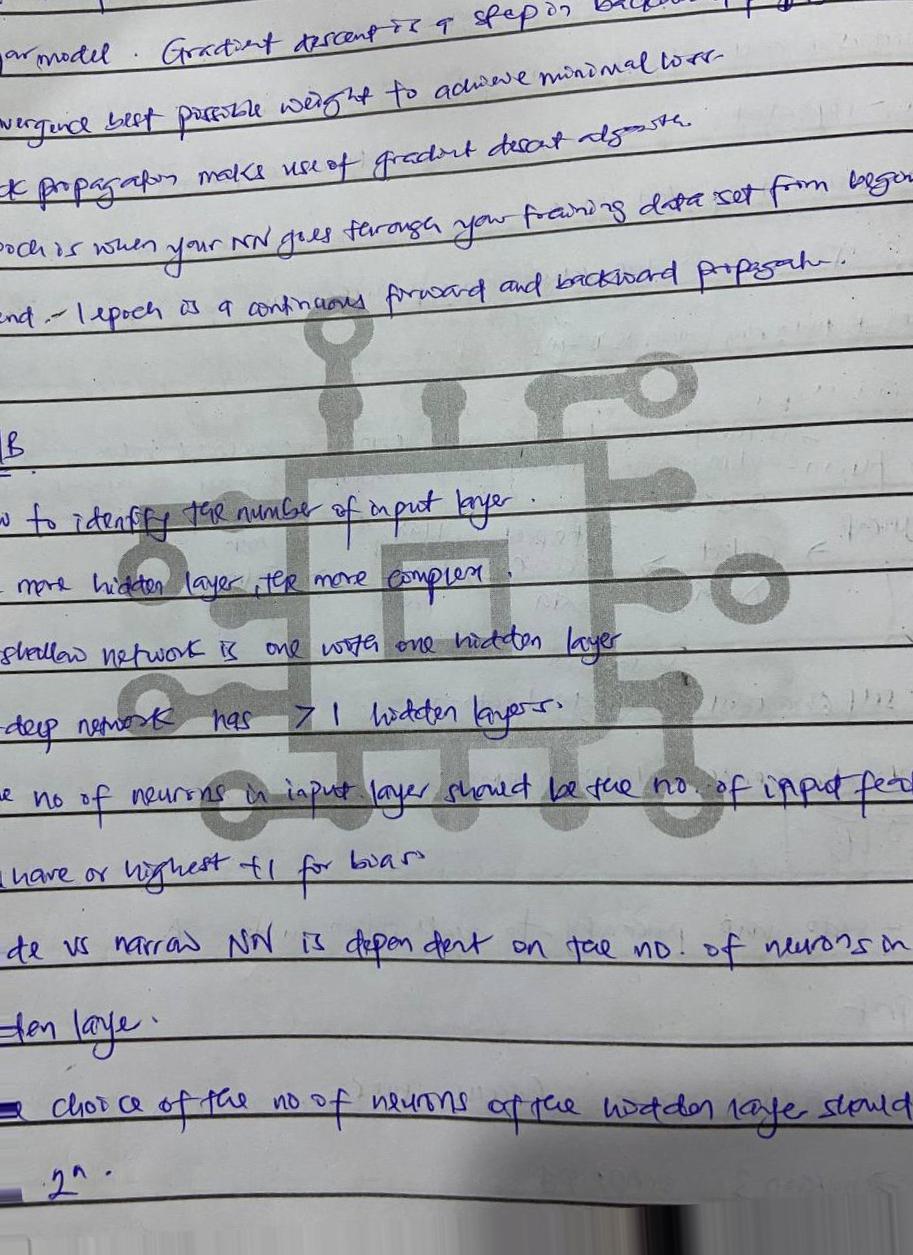 ar model. Gradient descent is a step in
vergence best possible weight to achieve minimal loss
ck propagation makes use of gradient descent
och is when your NN goes through your training data set from
end. - 1 epoch is a continuous forward and backward
B
w to identify the number of input layer.
more hidden layer, the more complex.
shallow network is one with one hidden layer
deep network has > 1 hidden layers.
e no of neurons in input layer should be the no. of input feat
have or highest +1 for bias
de vs narrow NN is dependent on the no. of neurons in
den laye.
e choice of the no of neurons of the hidden laye should
2ⁿ.